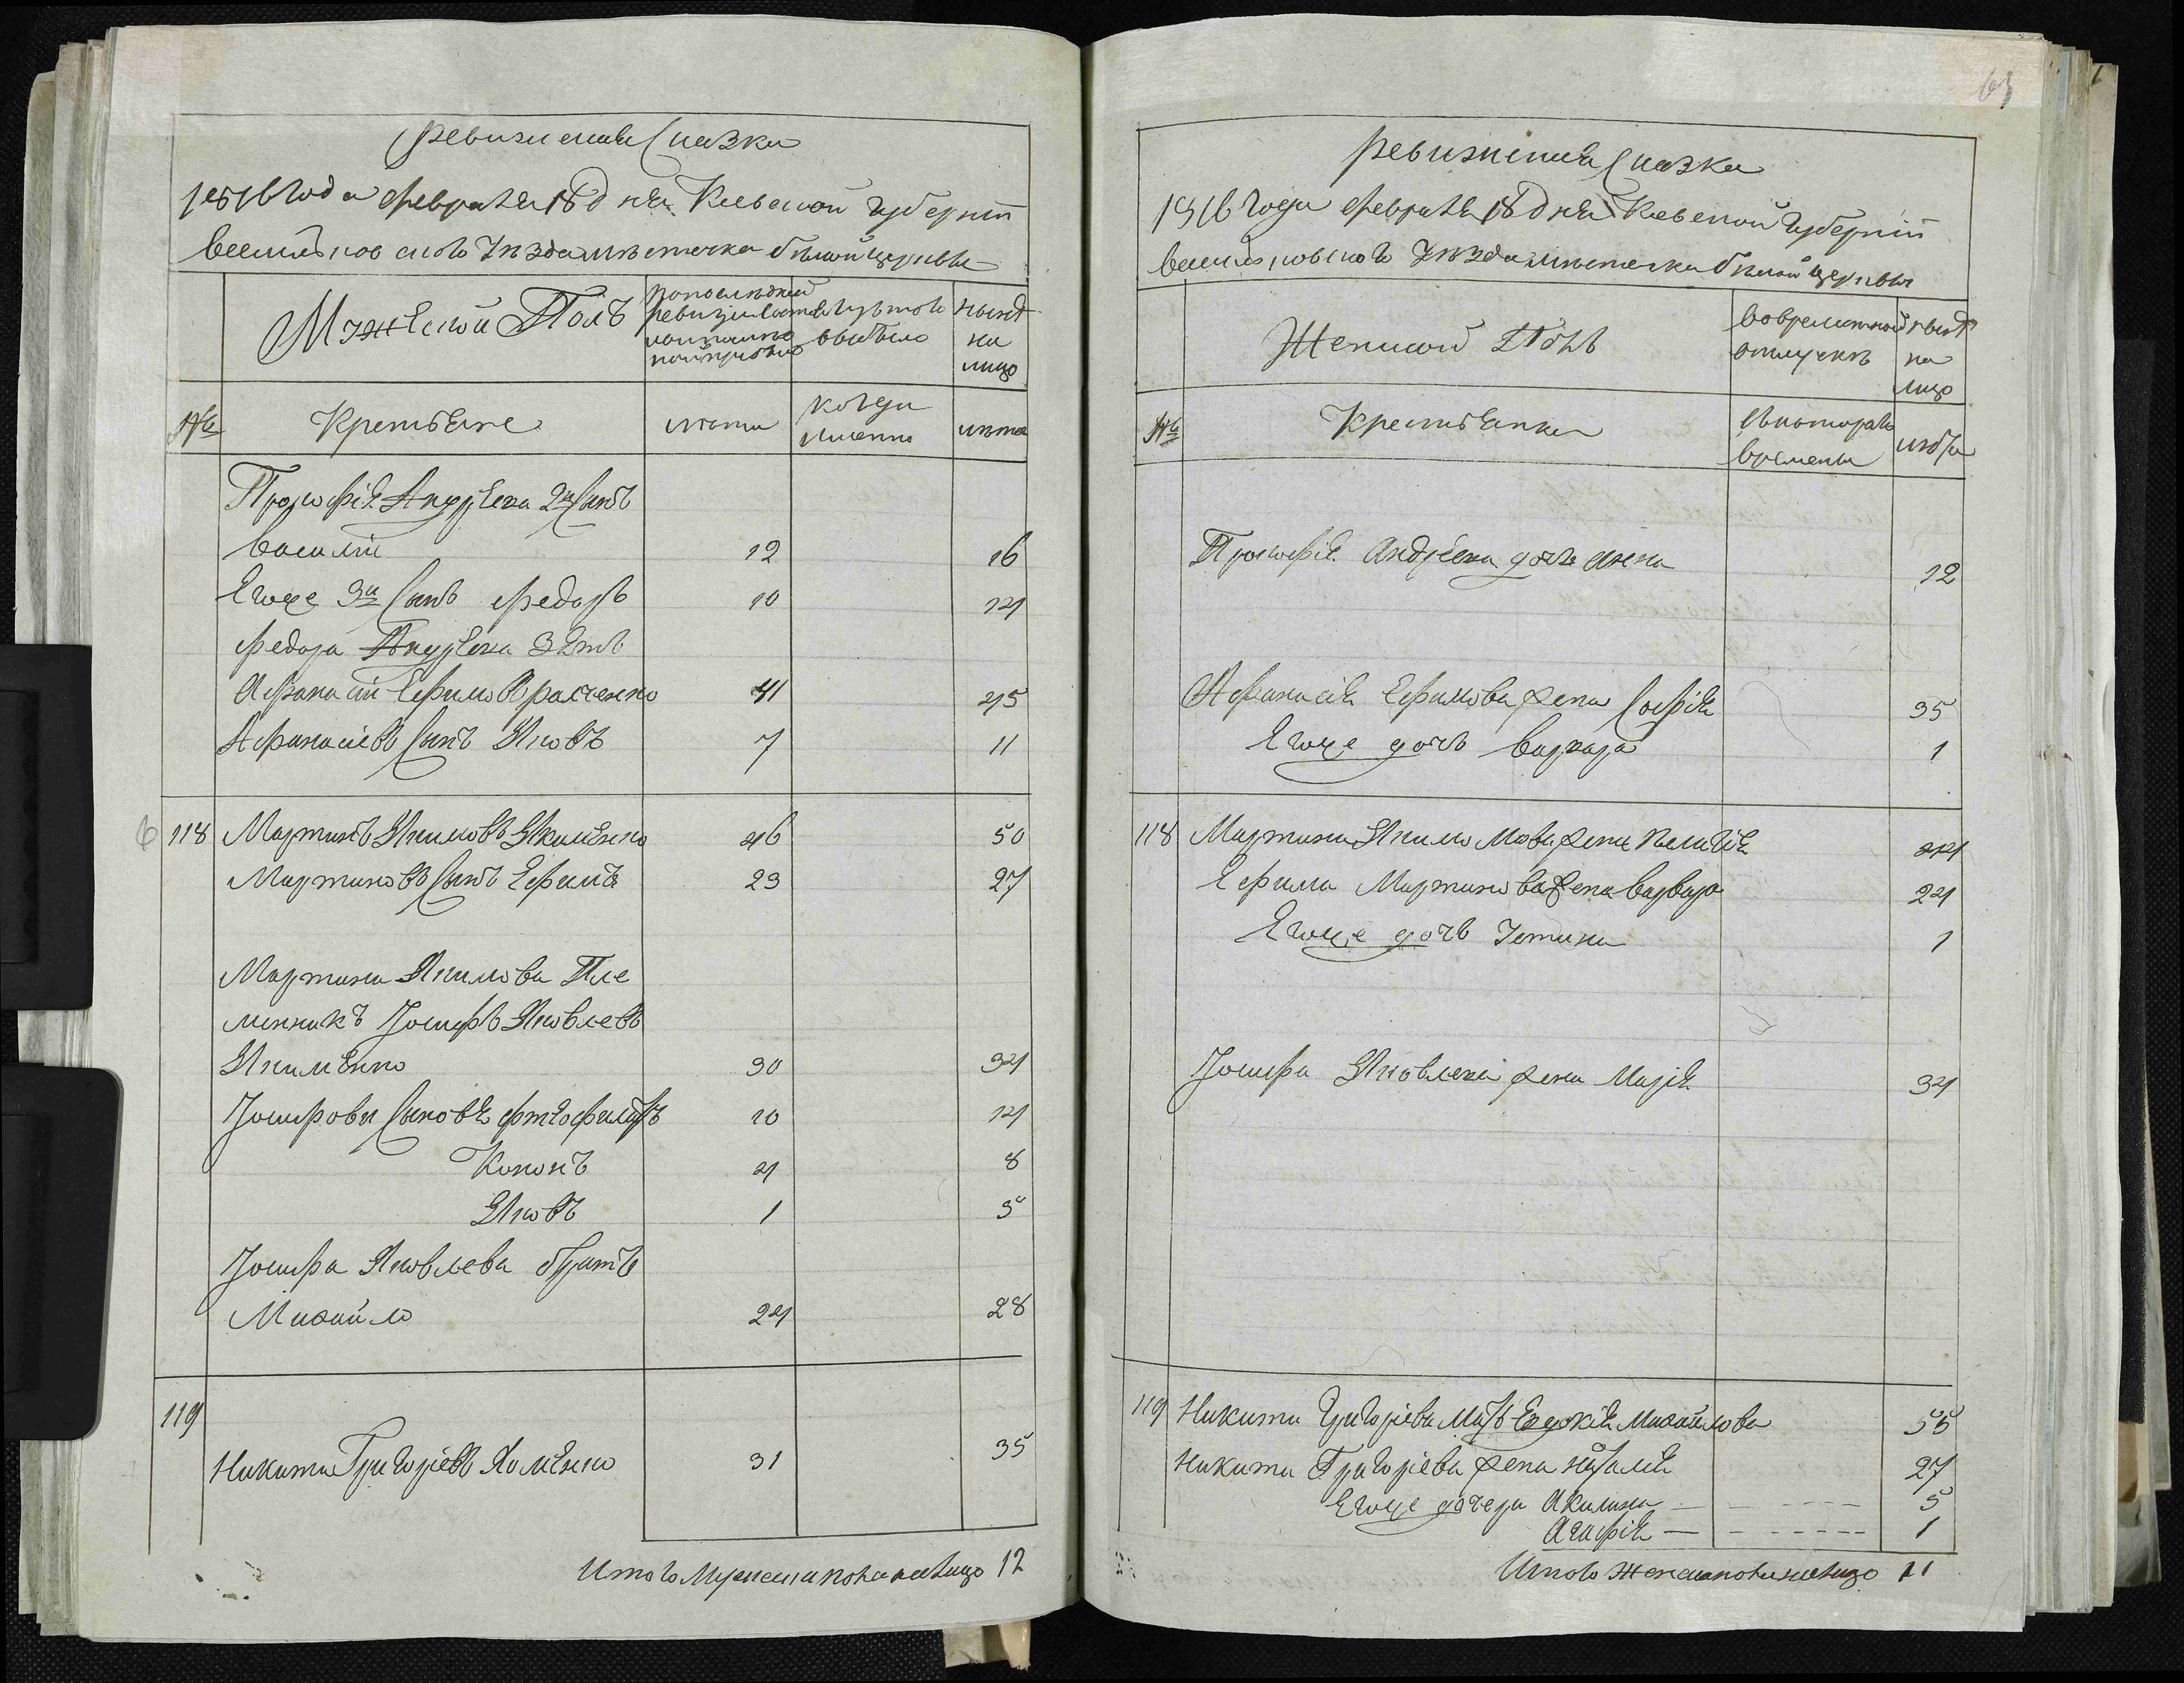 Ревизская Сказка
1816 Года февраля 18 Дня Киевской Губернiи
Василковского Уезда местечка белой церквы
Мужеской Полъ
по последней ревизiи состояло
изъ того выбыло
ныне на лицо
№
Крестьяне
лета
когда именно
лета
Прокофiя Андреева 2й Сынъ
василiй 12 16
Егоже 3й Сынъ федоръ 10 14
федора Андреева Зять
Афанасiй Ефимовъ 41 45
Афанасiевъ Сынъ Яковъ 7 11
118 Мартинъ Якимовъ Якименко 46 50
Мартиновъ Сынъ Ефимъ 23 27
Мартина Якимова Пле
менникъ Iосифъ Яковлевъ
Якименко 30 34
Iосифовы Сыновя 10 14
Кононъ 4 8
Яковъ 1 5
Iосифа Яковлева братъ
Михайло 24 28
119
Никита Григорiевъ Хоменко 31 35
Итого Мужеска пола налицо 12
63
Ревизская Сказка
1816 Года февраля 18 Дня Киевской Губернiи
Василковского Уезда местечка белой церквы
Женской Полъ
во временной отлучке
ныне на лицо
№
Крестьянки
съ которого времени
лета
Прокофiя Андреева дочь Анна 12
Афанасiя Ефимова жена Софiя 35
Егоже дочь варвара 1
118 Мартина Якимова жена Пелагiя 44
Ефима Мартинова жена варвара 24
Егоже дочь Устина 1
Iосифа Яковлева жена Марiя 34
119 Никиты Григорiева Мать Евдокiя Михайлова 55
Никиты Григорiева жена Наталiя 27
Егоже дочери Акилина 5
Агафiя 1
Итого Женска пола налицо 11